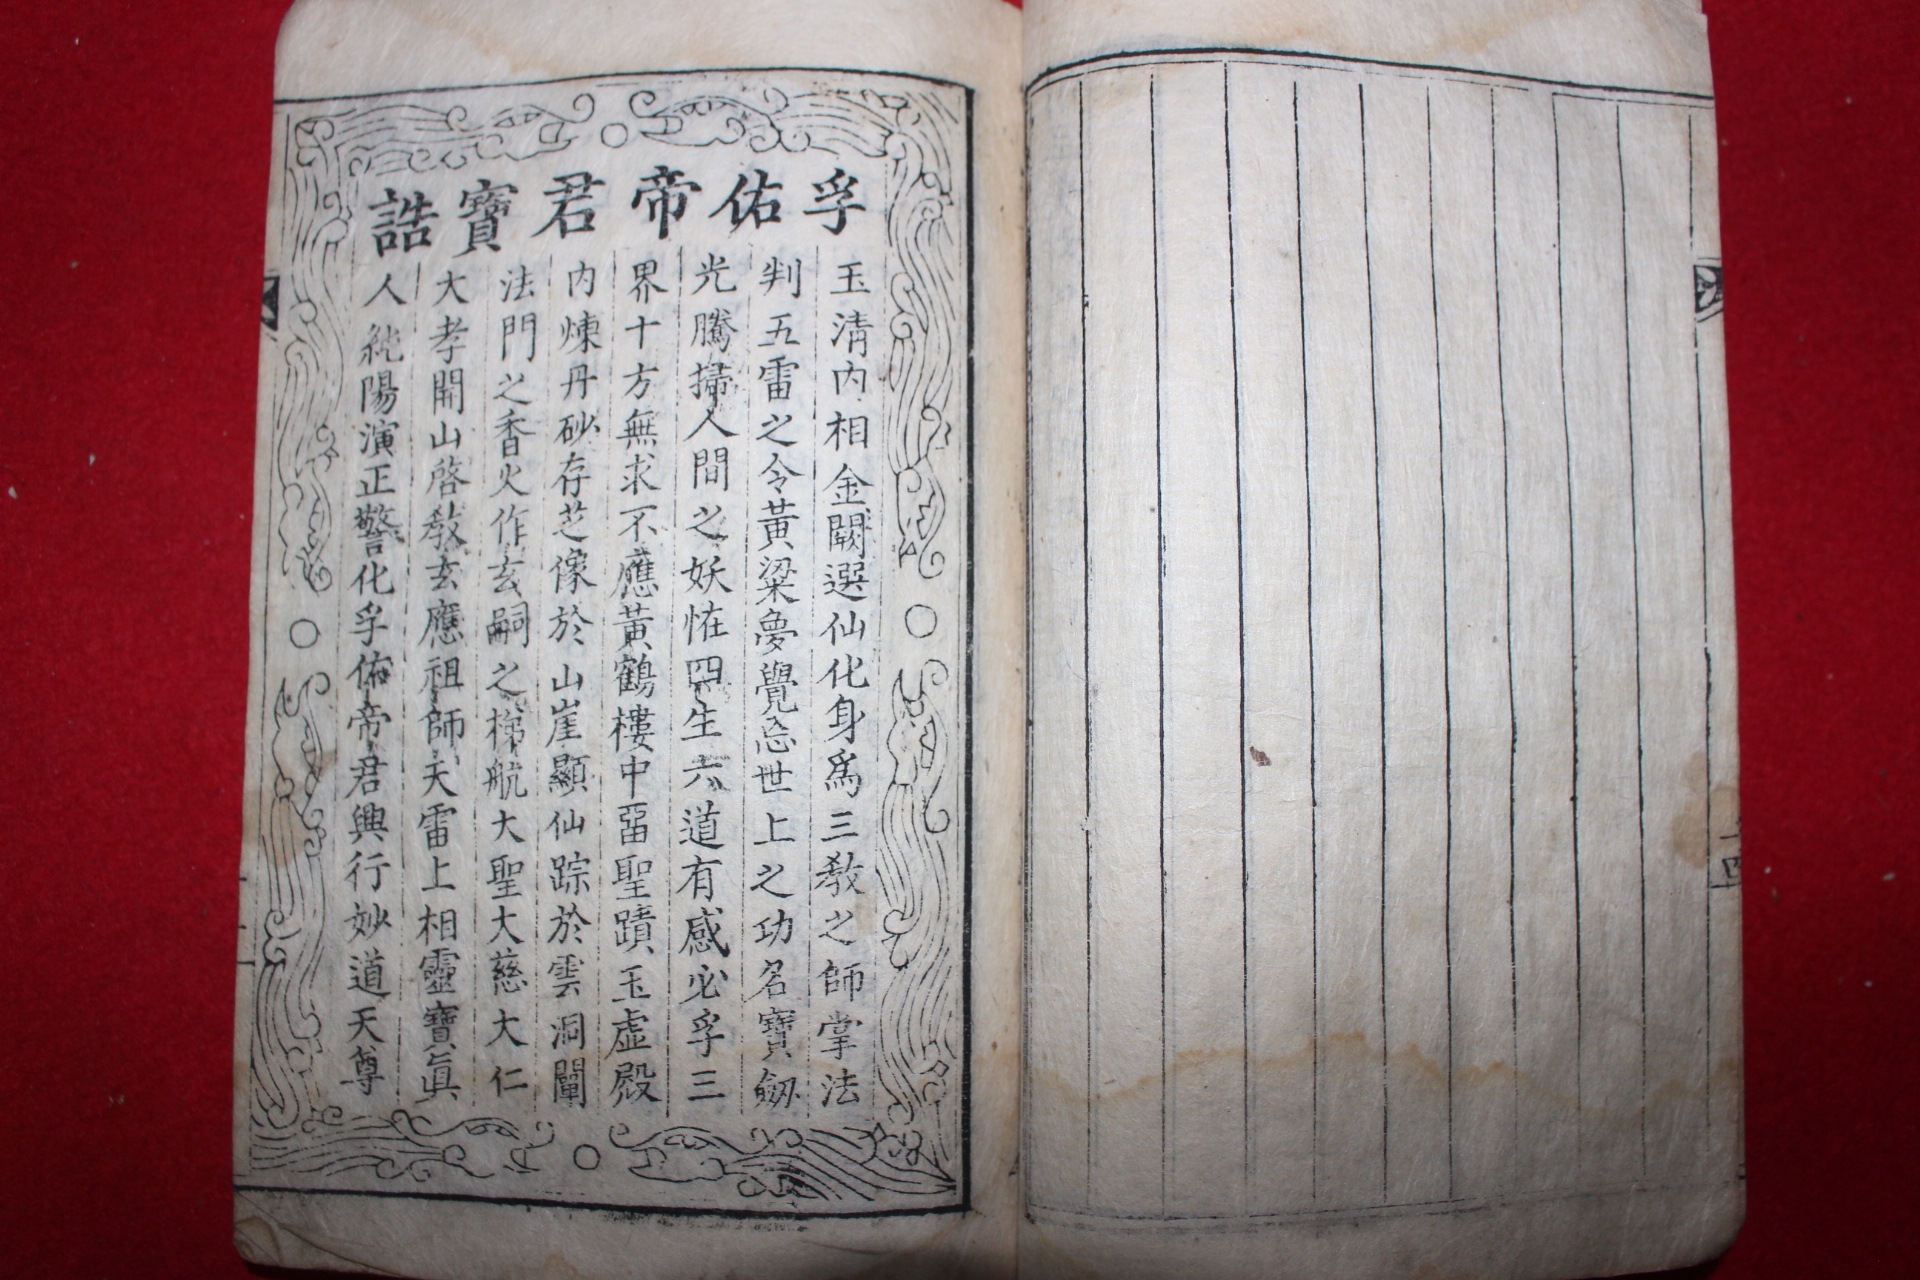 孚佑帝君寶誥
玉清內相金闕選仙化身爲三敎之師掌法
判五雷之令黃粱夢覺忘世上之功名寶劒
光騰掃人間之妖恠四生六道有感必孚三
界十方無求不應黃鶴樓中畱聖蹟玉虛殿
內煉丹砂存芝像於山崖顯仙踪於雲洞闡
法門之香火作玄嗣之梯航大聖大慈大仁
大孝開山啓敎玄應祖師天雷上相靈寶眞
人純陽演正警化孚佑帝君興行妙道天尊
十四